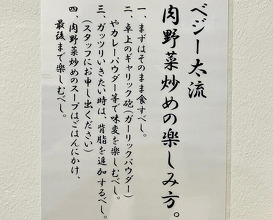 ベジー太流
肉野菜炒めの楽しみ方。
一、まずはそのまま食すべし。
二、卓上のギャリック砲(ガーリックパウダー)
やカレーパウダー等で味変を楽しむべし。
三、ガッツリいきたい時は、背脂を追加するべし。
(スタッフにお申し出ください)
四、肉野菜炒めのスープはごはんにかけ、
最後まで楽しむべし。